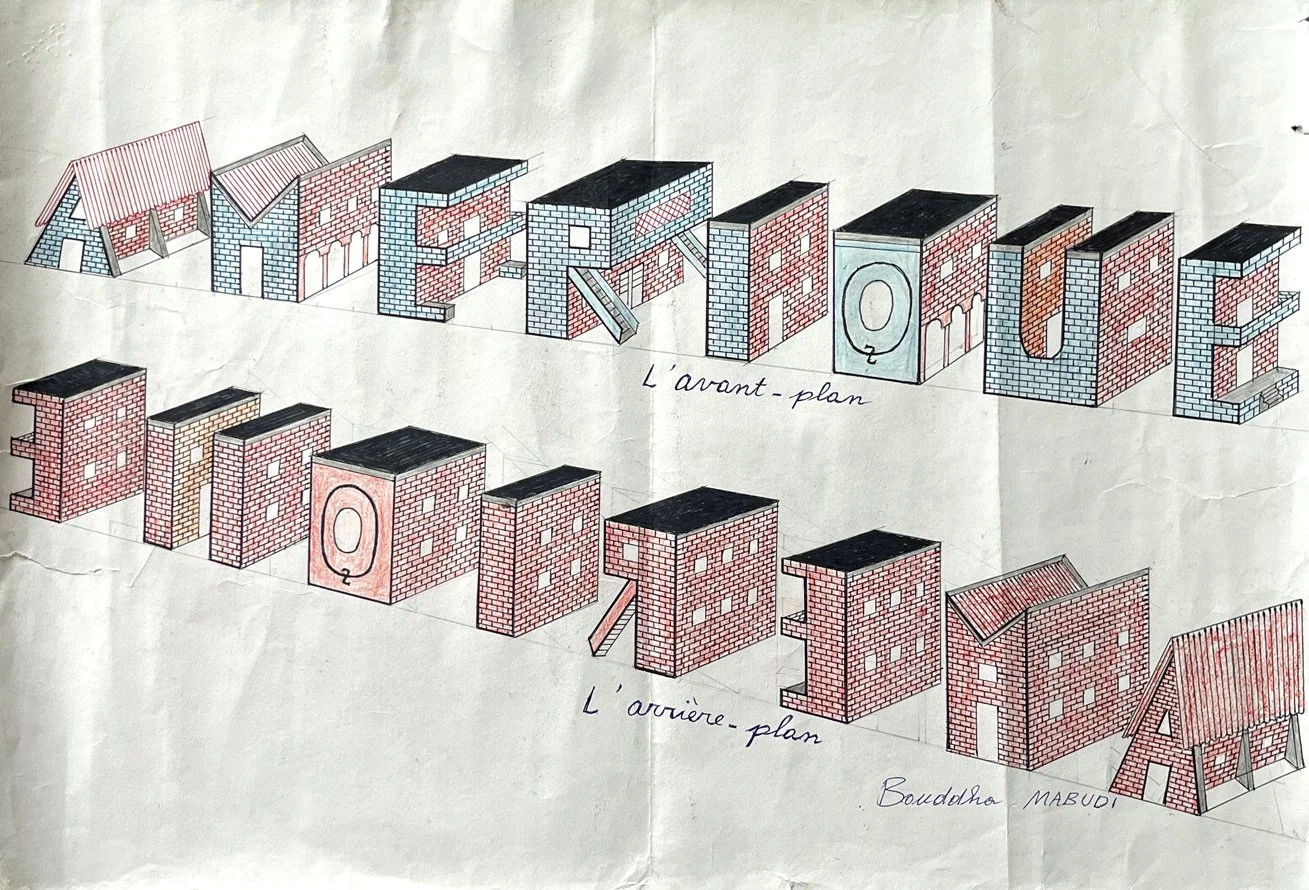 AMERIQUE
L'avant-plan
EUQIREMA
L'arrière-plan
Bouddha MABUDI